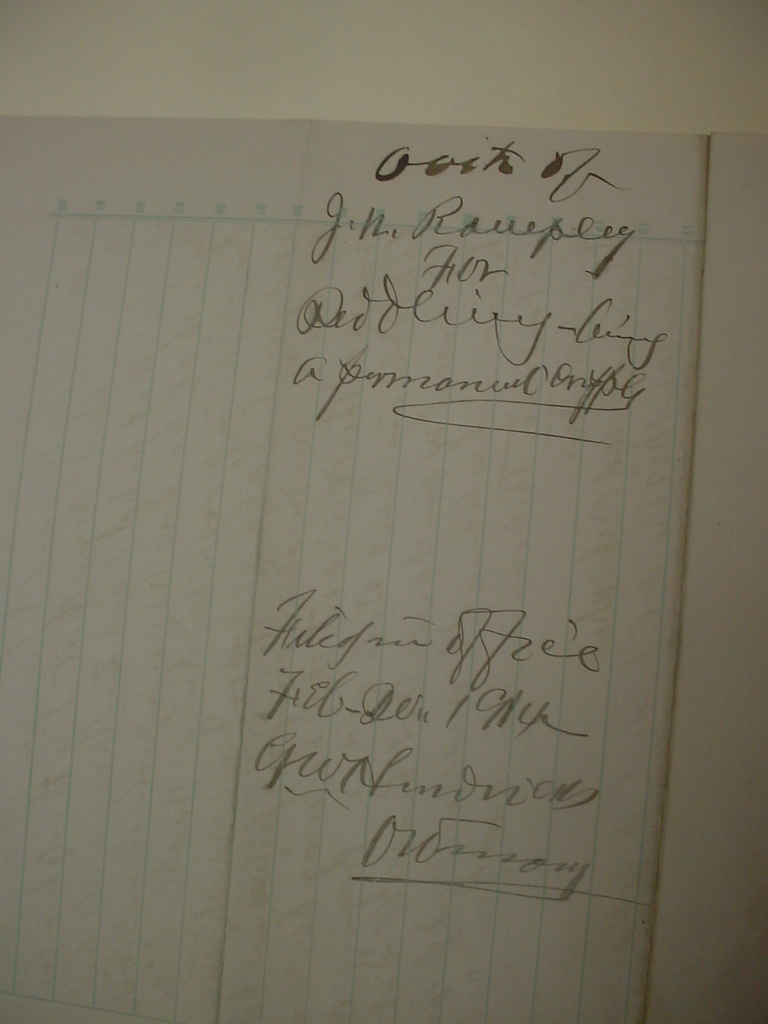 Oath of
J. N. Rampley
For
Peddling - being
a permanent cripple
Filed in office
Feb - 1914
G W Hendricks
Ordinary